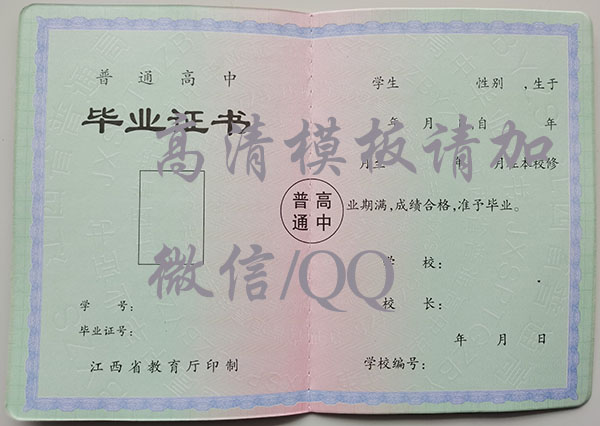 普通高中
毕业证书
学号:
毕业证号:
江西省教育厅印制
普高
通中
学生 性别 ,生于
年 月 ,自 年
月至 年 月在本校修
业期满,成绩合格,准予毕业。
学 校:
校 长:
年 月 日
学校编号:
高清模板请加
微信/QQ